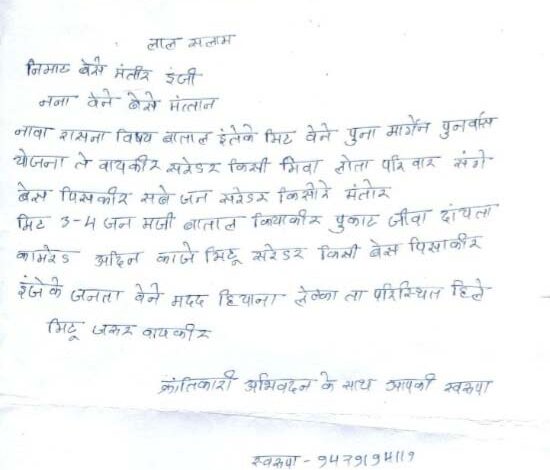 लाल सलाम
निमाट बेसे मंतीर इंजी
नना वेने बेसे मंत्तान
नावा रासना विषय बाताल इंतेके मिट वेने पुना मार्गेन पुनर्वास
योजना ते वायकीर सरेंडर किसी मिवा लोता परिवार संगे
बेस पिसकीर सबे जन सरेंडर किसोरे मंतोर
मिट 3-4 जन मजी बाताल कियाकीर पुकाट जीवा दांयता
कामरेड अदिन काजे मिटू सरेंडर किसी बेस पिसाकीर
इंजेके जनता वेने मदद हियाना लेव्का ता परिस्थित हिले
मिटू जरूर वायकीर
क्रांतिकारी अभिवदन के साथ आपकी स्वरूपा
स्वरूपा - 9479194119